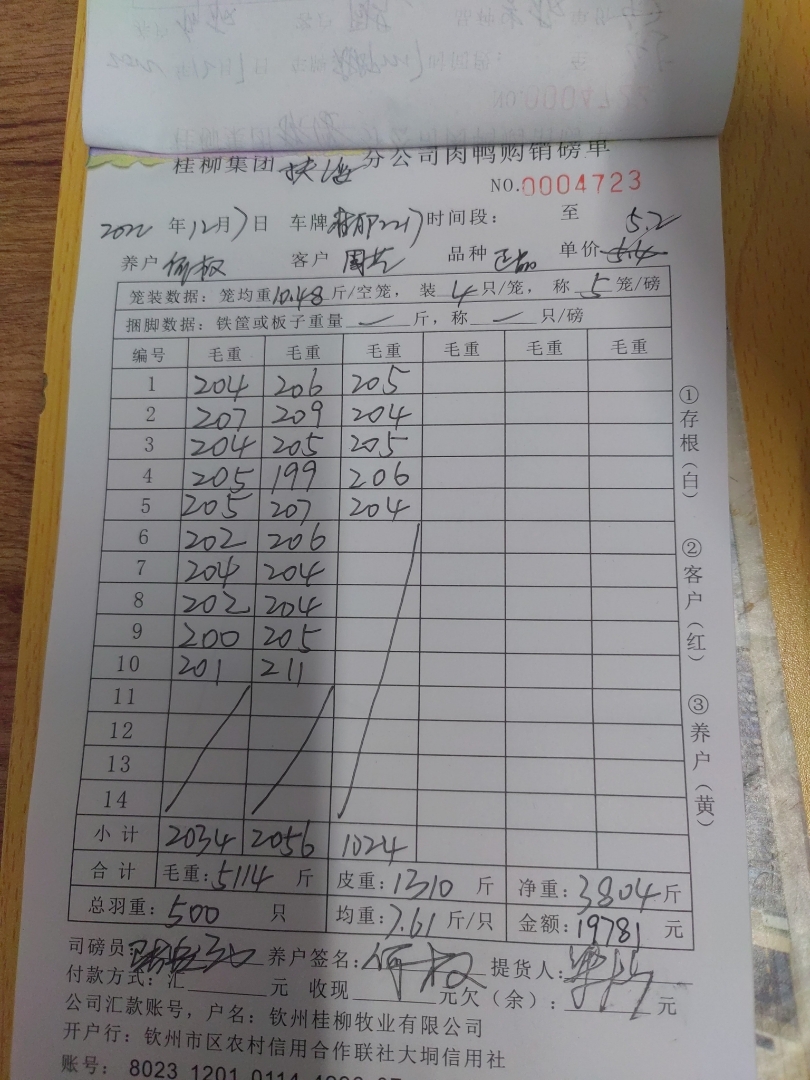 桂柳集团 扶海 分公司肉鸭购销磅单
NO.0004723
2022 年 12 月 7 日 车牌 2217 时间段： 至 5.2
养户 何权 客户 周芝 品种 正品 单价 5.4
笼装数据：笼均重 10.48 斤/空笼，装 4 只/笼，称 5 笼/磅
捆脚数据：铁筐或板子重量 — 斤，称 — 只/磅
编号 毛重 毛重 毛重 毛重 毛重 毛重
1 204 206 205
2 207 209 204
3 204 205 205
4 205 199 206
5 205 207 204
6 202 206
7 204 204
8 202 204
9 200 205
10 201 211
11
12
13
14
小计 2034 2056 1024
合计 毛重：5114 斤 皮重：1310 斤 净重：3804 斤
总羽重：500 只 均重：7.61 斤/只 金额：19781 元
司磅员： 养户签名：何权 提货人：
付款方式：汇 元 收现 元欠（余）： 元
公司汇款账号，户名：钦州桂柳牧业有限公司
开户行：钦州市区农村信用合作联社大垌信用社
账号：8023 1201 0114
①存根（白）
②客户（红）
③养户（黄）